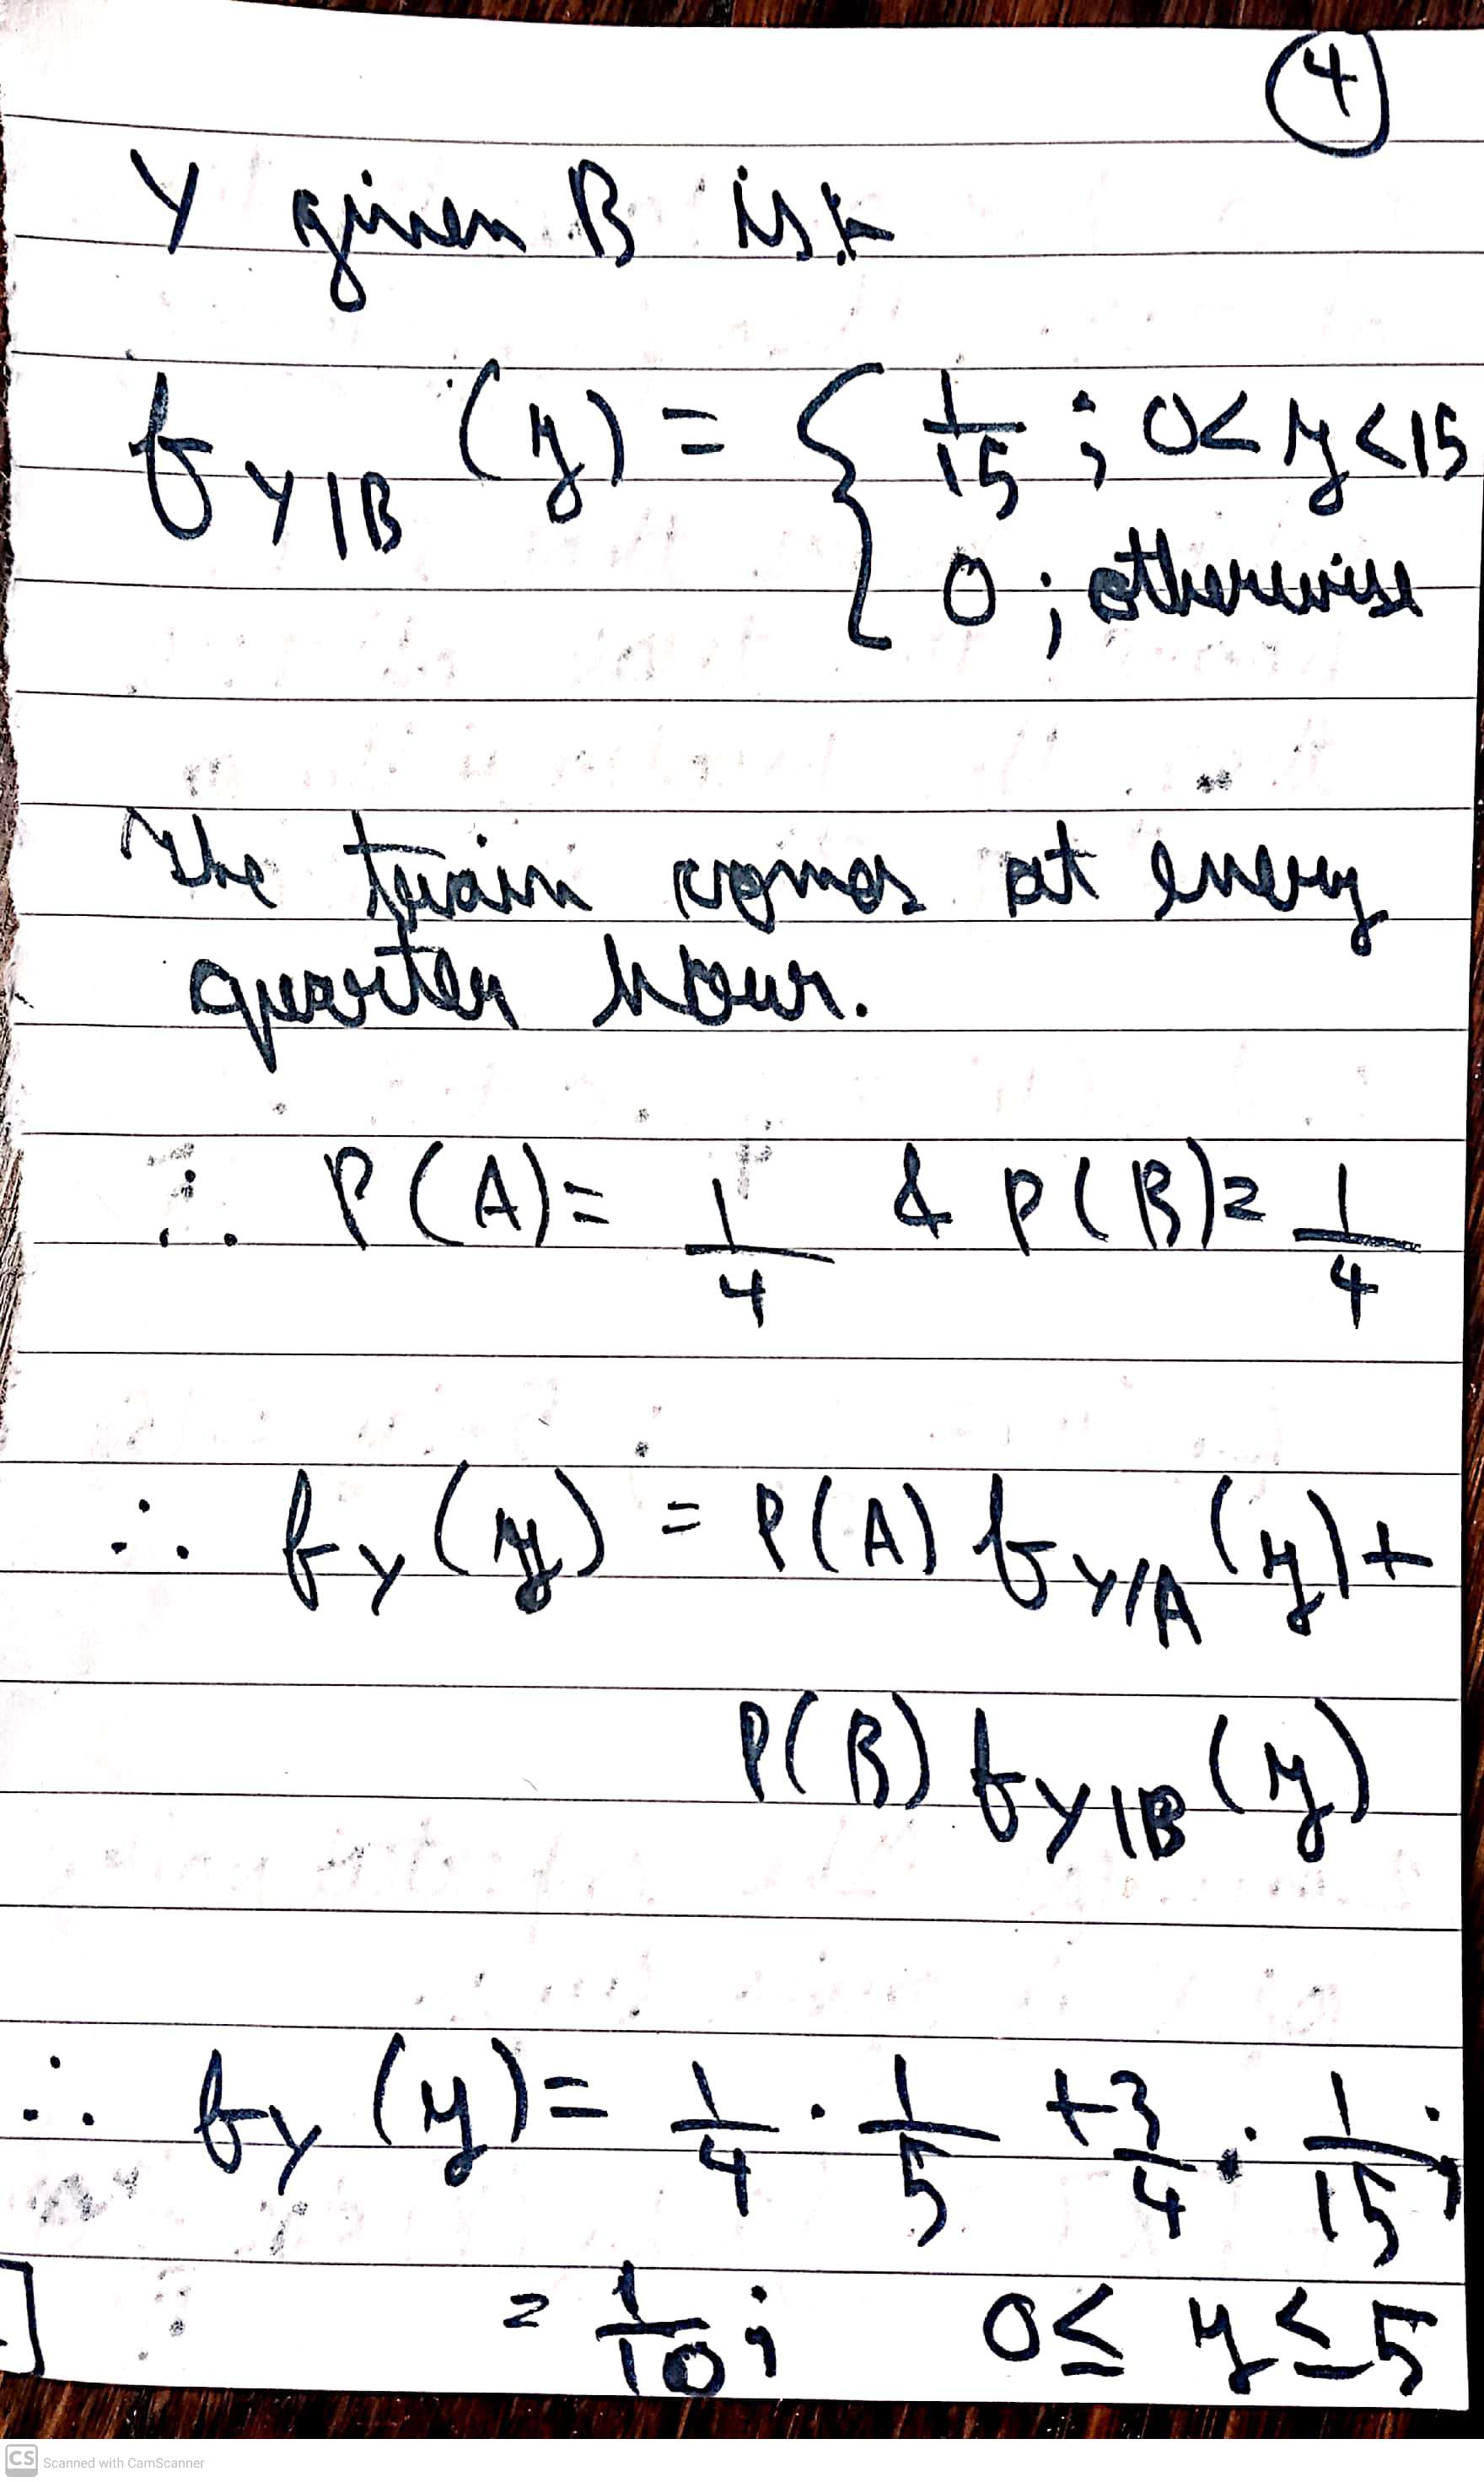 4
Y given B is :-
f_Y|B (y) = { 1/15 ; 0 < y < 15
0 ; otherwise
The train comes at every
quarter hour.
∴ P(A) = 1/4 & P(B) = 1/4
∴ f_Y (y) = P(A) f_Y|A (y) +
P(B) f_Y|B (y)
∴ f_Y (y) = 1/4 · 1/5 + 3/4 · 1/15 ;
= 1/10 ; 0 ≤ y ≤ 5
CS Scanned with CamScanner